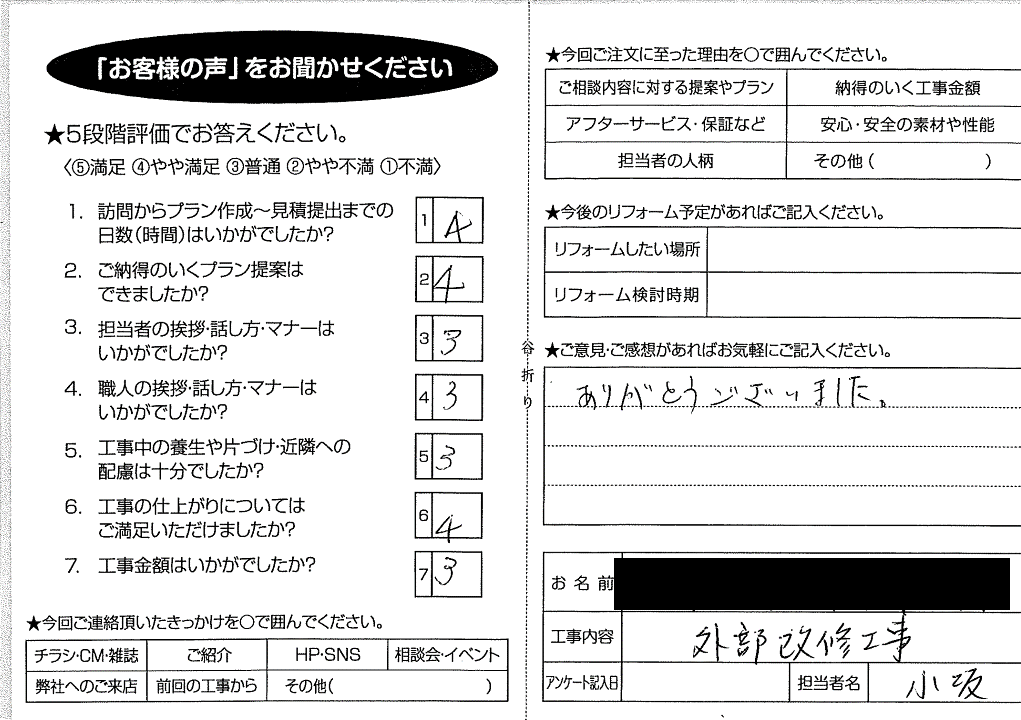 「お客様の声」をお聞かせください
★5段階評価でお答えください。
〈⑤満足 ④やや満足 ③普通 ②やや不満 ①不満〉
1. 訪問からプラン作成～見積提出までの
日数(時間)はいかがでしたか?
1 4
2. ご納得のいくプラン提案は
できましたか?
2 4
3. 担当者の挨拶・話し方・マナーは
いかがでしたか?
3 3
4. 職人の挨拶・話し方・マナーは
いかがでしたか?
4 3
5. 工事中の養生や片づけ・近隣への
配慮は十分でしたか?
5 3
6. 工事の仕上がりについては
ご満足いただけましたか?
6 4
7. 工事金額はいかがでしたか?
7 3
★今回ご連絡頂いたきっかけを○で囲んでください。
チラシ・CM・雑誌 ご紹介 HP・SNS 相談会・イベント
弊社へのご来店 前回の工事から その他( )
谷折り
★今回ご注文に至った理由を○で囲んでください。
ご相談内容に対する提案やプラン 納得のいく工事金額
アフターサービス・保証など 安心・安全の素材や性能
担当者の人柄 その他( )
★今後のリフォーム予定があればご記入ください。
リフォームしたい場所
リフォーム検討時期
★ご意見・ご感想があればお気軽にご記入ください。
ありがとうございました。
お名前
工事内容 外部改修工事
アンケート記入日 担当者名 小坂